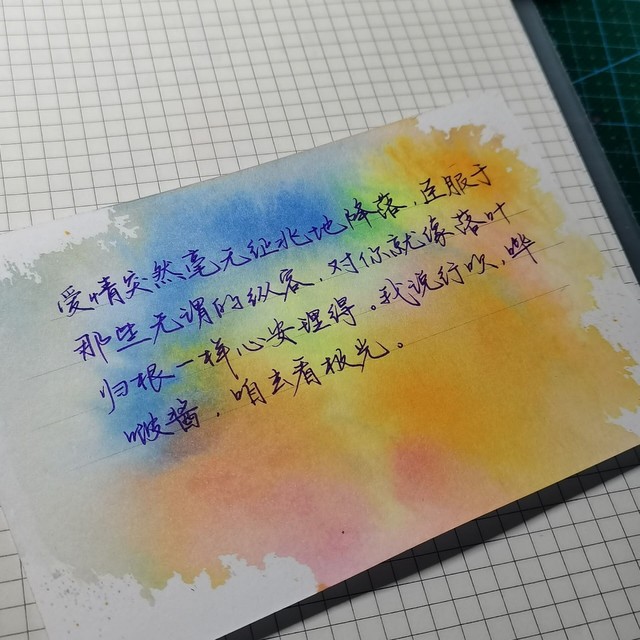 爱情突然毫无征兆地降落，臣服于
那些无谓的纵容，对你就像落叶
归根一样心安理得。我说行吹，哗
啵酱，咱去看极光。